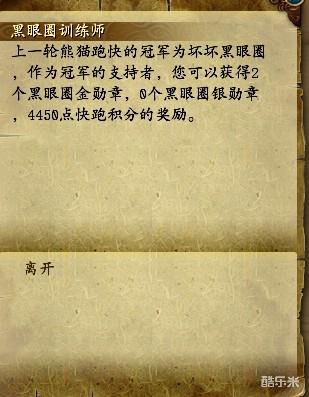 黑眼圈训练师
上一轮熊猫跑快的冠军为坏坏黑眼圈
，作为冠军的支持者，您可以获得2
个黑眼圈金勋章，0个黑眼圈银勋章
，4450点快跑积分的奖励。
离开
酷乐米